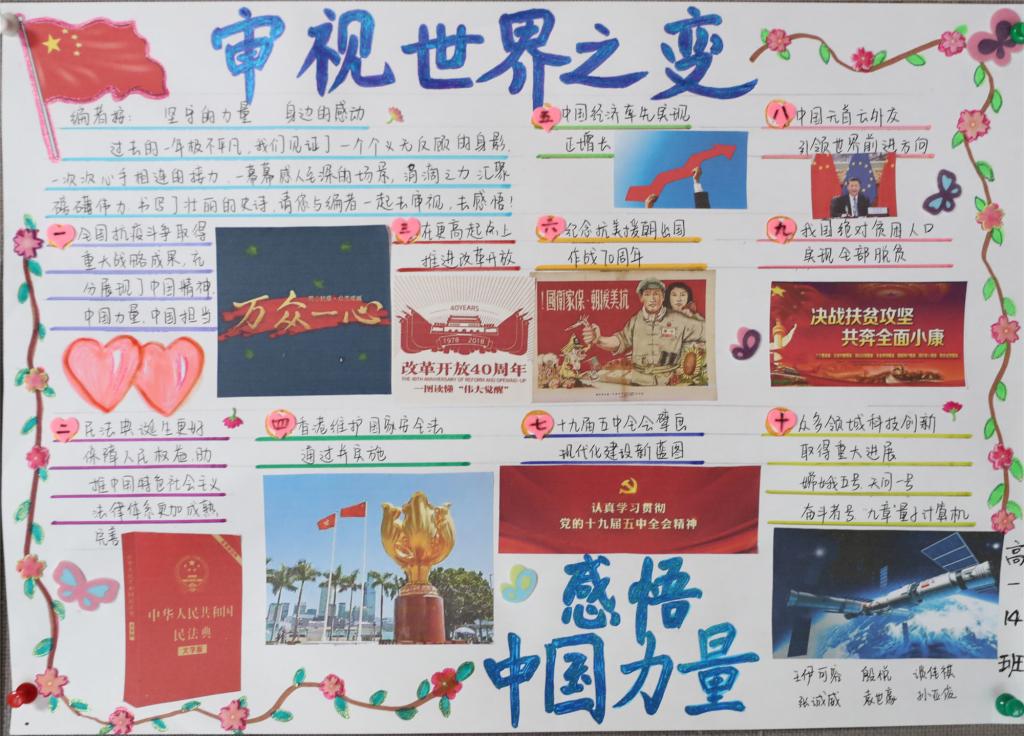 审视世界之变
编者按： 坚守的力量 身边的感动
过去的一年极不平凡，我们见证了一个个义无反顾的身影，
一次次心手相连的接力，一幕幕感人至深的场景，涓滴之力汇聚
磅礴伟力，书写了壮丽的史诗，请你与编者一起去审视，去感悟！
一 全国抗疫斗争取得
重大战略成果，充
分展现了中国精神，
中国力量，中国担当
万众一心
二 民法典诞生更好
保障人民权益，助
推中国特色社会主义
法律体系更加成熟
完善
中华人民共和国
民法典
大字版
三 在更高起点上
推进改革开放
40YEARS
1978 2018
改革开放40周年
THE 40TH ANNIVERSARY OF REFORM AND OPENING-UP
一图读懂“伟大觉醒”
四 香港维护国家安全法
通过并实施
五 中国经济率先实现
正增长
六 纪念抗美援朝出国
作战70周年
！國衛家保·朝援美抗
七 十九届五中全会擘画
现代化建设新蓝图
认真学习贯彻
党的十九届五中全会精神
八 中国元首云外交
引领世界前进方向
九 我国绝对贫困人口
实现全部脱贫
决战扶贫攻坚
共奔全面小康
十 众多领域科技创新
取得重大进展
嫦娥五号 天问一号
奋斗者号 九章量子计算机
感悟
中国力量
高一14班